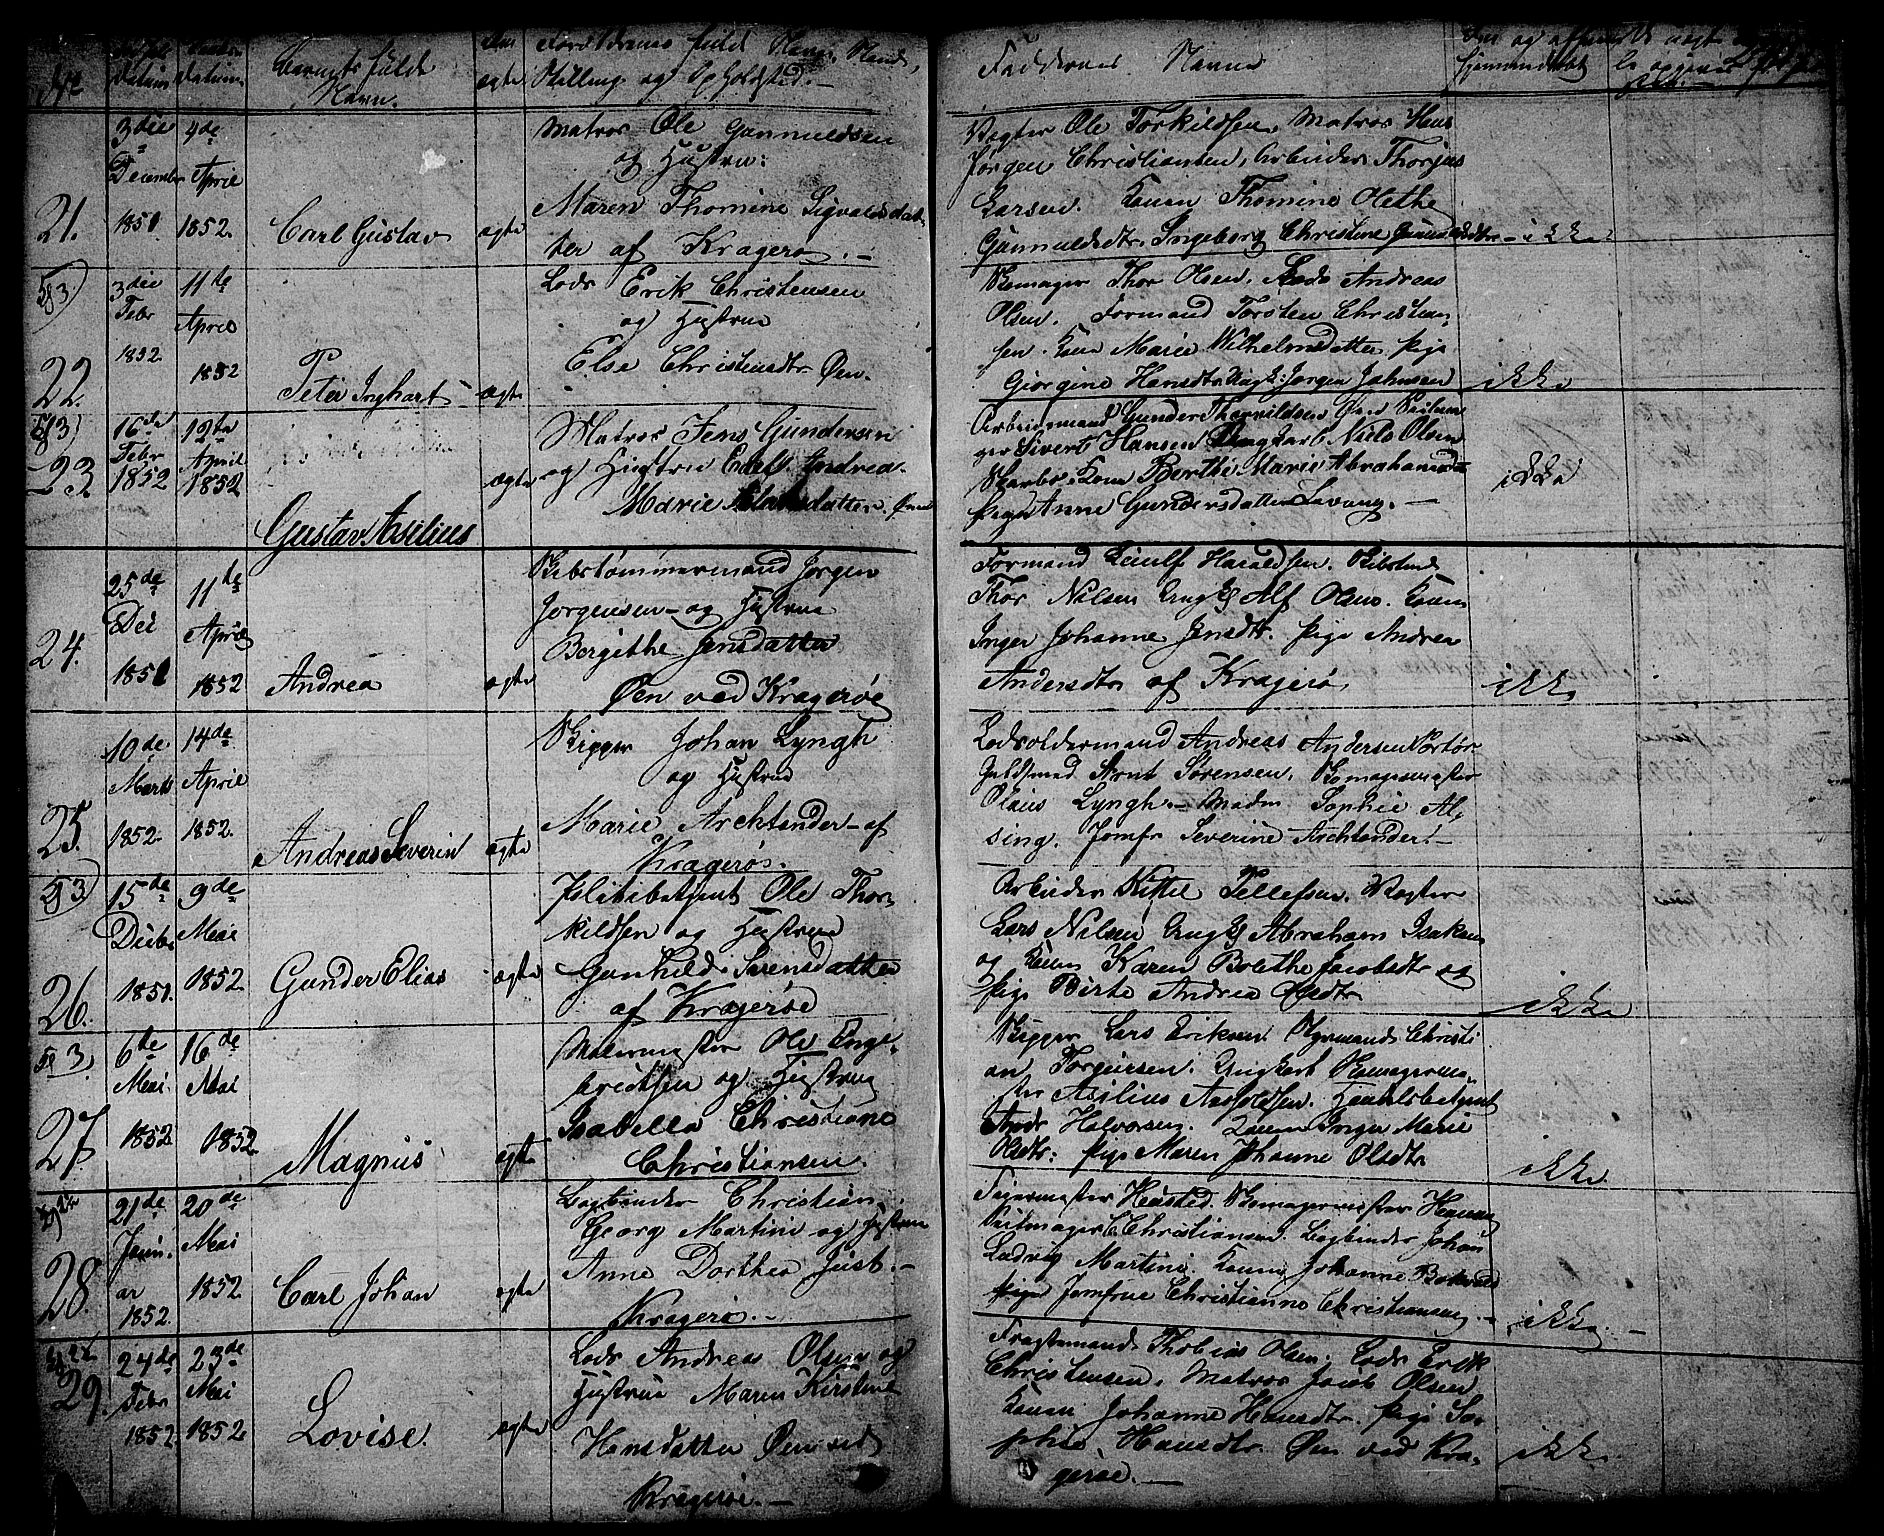 Barnets fulde
Navn.
ægte
Stilling og Opholdssted. -
Faddernes Navne
21.
3die
December
1851
4de
April
1852.
Carl Gustav
ægte
Matros Ole Gunnuldsen
og Hustru:
Maren Thomine Sigvaldsdat-
ter af Kragerø. -
Vægter Ole Torkildsen, Matros Hans
Jørgen Christiansen, Arbeider Thorjus
Larsen. Konen Thomine Olethe
Gunnuldsdtr. Ingeborg Christine
ikke
22.
3die
Febr
1852
11te
April
1852
Peter Inghart
ægte
Lods Erik Christensen
og Hustrue
Else Christensdtr Øen.
Skomager Thor Olsen, Lods Andreas
Olsen. Formand Torsten Christen-
sen. Kone Marie Wilhelmsdatter pige
Giorgine Hansdtr Ungk: Jørgen Johnsen
ikke
23
16de
Febr
1852
12te
April
1852
Gustav Asilius
ægte
Matros Jens Gundersen
og Hustrue Edel Andrea
Marie datter. Øen
Arbeidsmand Gunder
Sivert Hansen Ungkarl Niels Olsen
Kone Berthe Marie Abrahamsdtr
pige Anne Gundersdatter Levang. -
ikke
24.
25de
Dec
1851
11te
April
1852
Andrea
ægte
Skibstømmermand Jørgen
Jørgensen og Hustrue
Bergithe Jensdatter
Øen ved Kragerøe
Formand Haraldsen.
Thor Nilsen Ungk Alf Olsen. Konen
Inger Johanne Jensdtr. pige Andrea
Andersdtr af Kragerø,
ikke
25.
10de
Marts
1852.
14de
April
1852.
Andreas Severin
ægte
Skipper Johan Lyngh
og Hustrue
Marie Archtander - af
Kragerøe.
Lodsoldermand Andreas Andersen Portør
Guldsmed Arnt Sørensen. Skomagermester
Olaus Lyngh. - Madm Sophie Al-
sing. Jomfr Severine Archtander. -
26.
15de
Decbr
1851.
9de
Mai
1852
Gunder Elias
ægte
Politibetjent Ole Thor-
kildsen og Hustrue
Gunhild Sørensdatter
af Kragerøe
Arbeider Kittel Tellefsen. Vægter
Lars Nilsen Ungk Abraham Isaksen
og Konen Karen Borethe Jacobsdtr og
pige Birte Andrea Olsdtr
ikke
27
6te
Mai.
1852.
16de
Mai
1852
Magnus
ægte
Malermester Ole Enge-
brictsen og Hustrue
Isabella Christiane
Christiansen.
Skipper Lars Eriksen. Christi
an Torgersen. Ungkarl Skomagerme-
ster Asilius Aarholdsen. Handelsbetjent
Andr Halvorsen. Konen Inger Marie
Olsdtr: pige Maren Johanne Olsdtr
ikke.
28
21de
Janu-
ar
1852.
20de
Mai
1852.
Carl Johan
ægte
Bogbinder Christian
Georg Martini og Hustrue
Anne Dorthea Just. -
Kragerø. -
Feiermester Heasted. Skomagermester Hansen
Seilmager C Christiansen. Bogbinder Johan
Ludvig Martini. Konen Johanne
pige Jomfrue Christianne Christiansen. -
ikke. -
29.
24de
Febr
1852.
23de
Mai
1852
Lovise.
ægte
Lods Andreas Olsen og
Hustrue Maren Kirstine
Hansdatter Øen ved
Kragerøe. -
Fragtemand Thobias Olsen. Lods Erik
Christensen. Matros Jacob Olsen
Konen Johanne Hansdtr. pige So-
phie Hansdtr. Øen ved Kra-
gerøe. -
ikke.